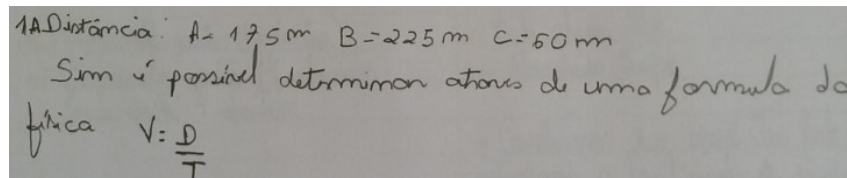 1A Distância: A= 175m B=225m C=50m
Sim é possível determinar atraves de uma formula da
física V= D/T